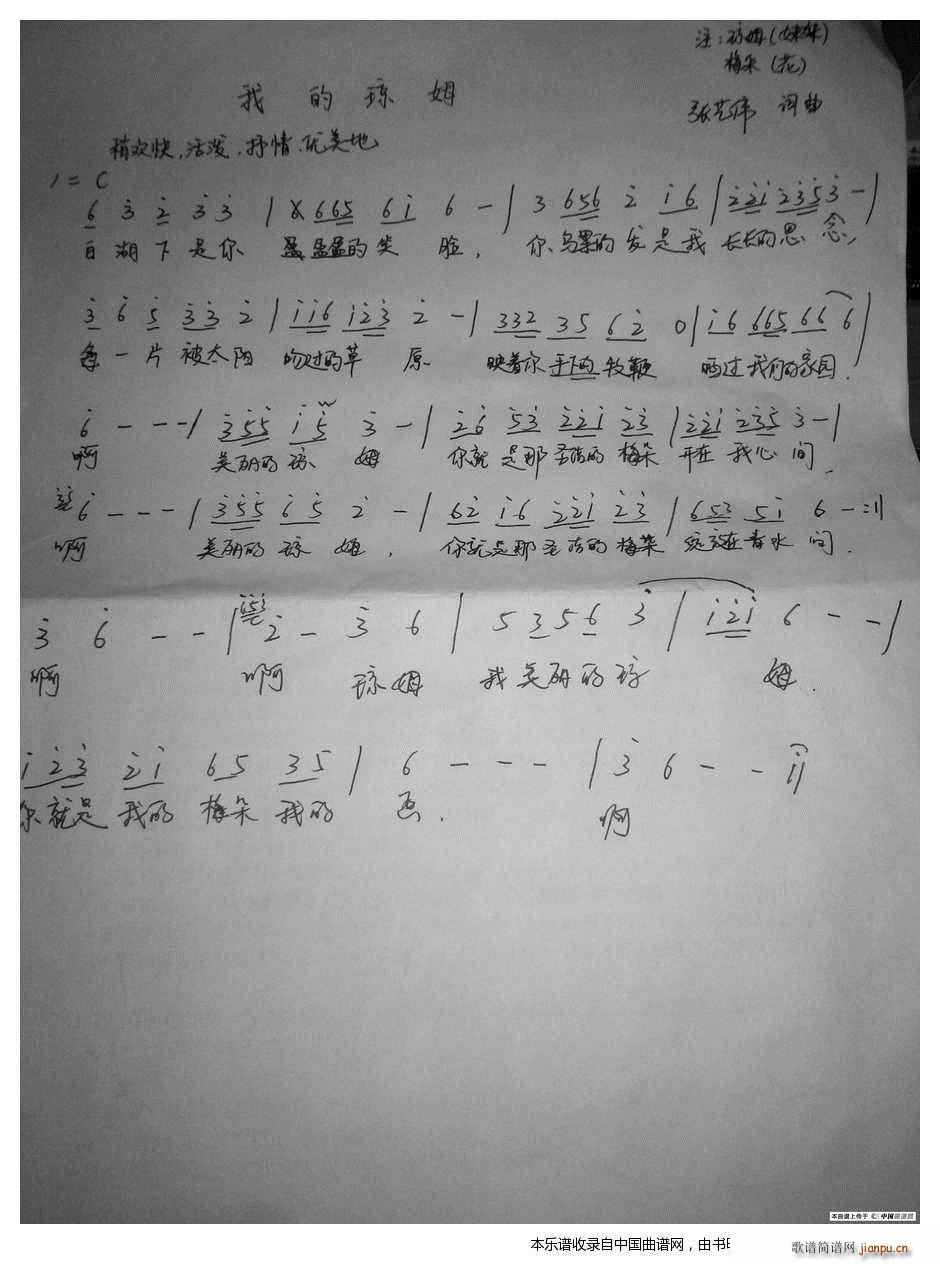 注：琼姆(妹妹)
梅朵(花)
我的琼姆
张艺伟 词曲
稍欢快、活泼、抒情、优美地
1=C
6 3 2 3 3 | X 665 61 6 - | 3 656 2 16 | 221 2353 - |
白湖下是你 盈盈盈的笑脸， 你乌黑的发是我长长的思念，
3 6 5 33 2 | 116 123 2 - | 332 35 62 0 | 16 665 66 6 |
每一片被太阳吻过的草原 映着你手下的牧鞭 唱过我们的家园.
6 - - - | 355 15 3 - | 26 53 221 23 | 221 235 3 - |
啊 美丽的琼姆 你就是那圣洁的梅朵 开在我心间.
6 - - - | 355 65 2 - | 62 16 221 23 | 653 51 6 - :||
啊 美丽的琼姆， 你就是那圣洁的梅朵 在春水间.
3 6 - - | 2 - 3 6 | 5 3 5 6 3 | 121 6 - - |
啊 啊 琼姆 我美丽的琼 姆.
123 21 65 35 | 6 - - - | 3 6 - - 1||
你就是我的梅朵我的 啊
本曲谱上传于 中国曲谱网
本乐谱收录自中国曲谱网，由书
歌谱简谱网 jianpu.cn